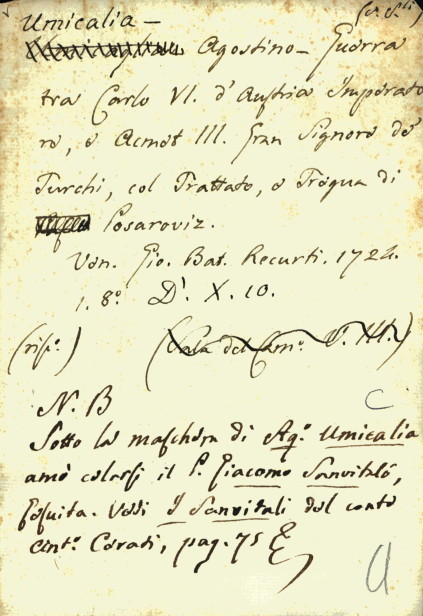 Umicalia —
Agostino — Guerra
tra Carlo VI. d'Austria Imperato
re, e Acmet III. Gran Signore de'
Turchi, col Trattato, e Tregua di
Posaroviz.
Ven. Gio. Bat. Recurti. 1724.
1. 8.º D'. X. 10.
(risp.º)
N. B
Sotto la maschera di Ag.º Umicalia
amò celarsi il P. Giacomo Sanvitali,
Gesuita. Vedi I Sanvitali del conte
Cerati, pag. 75